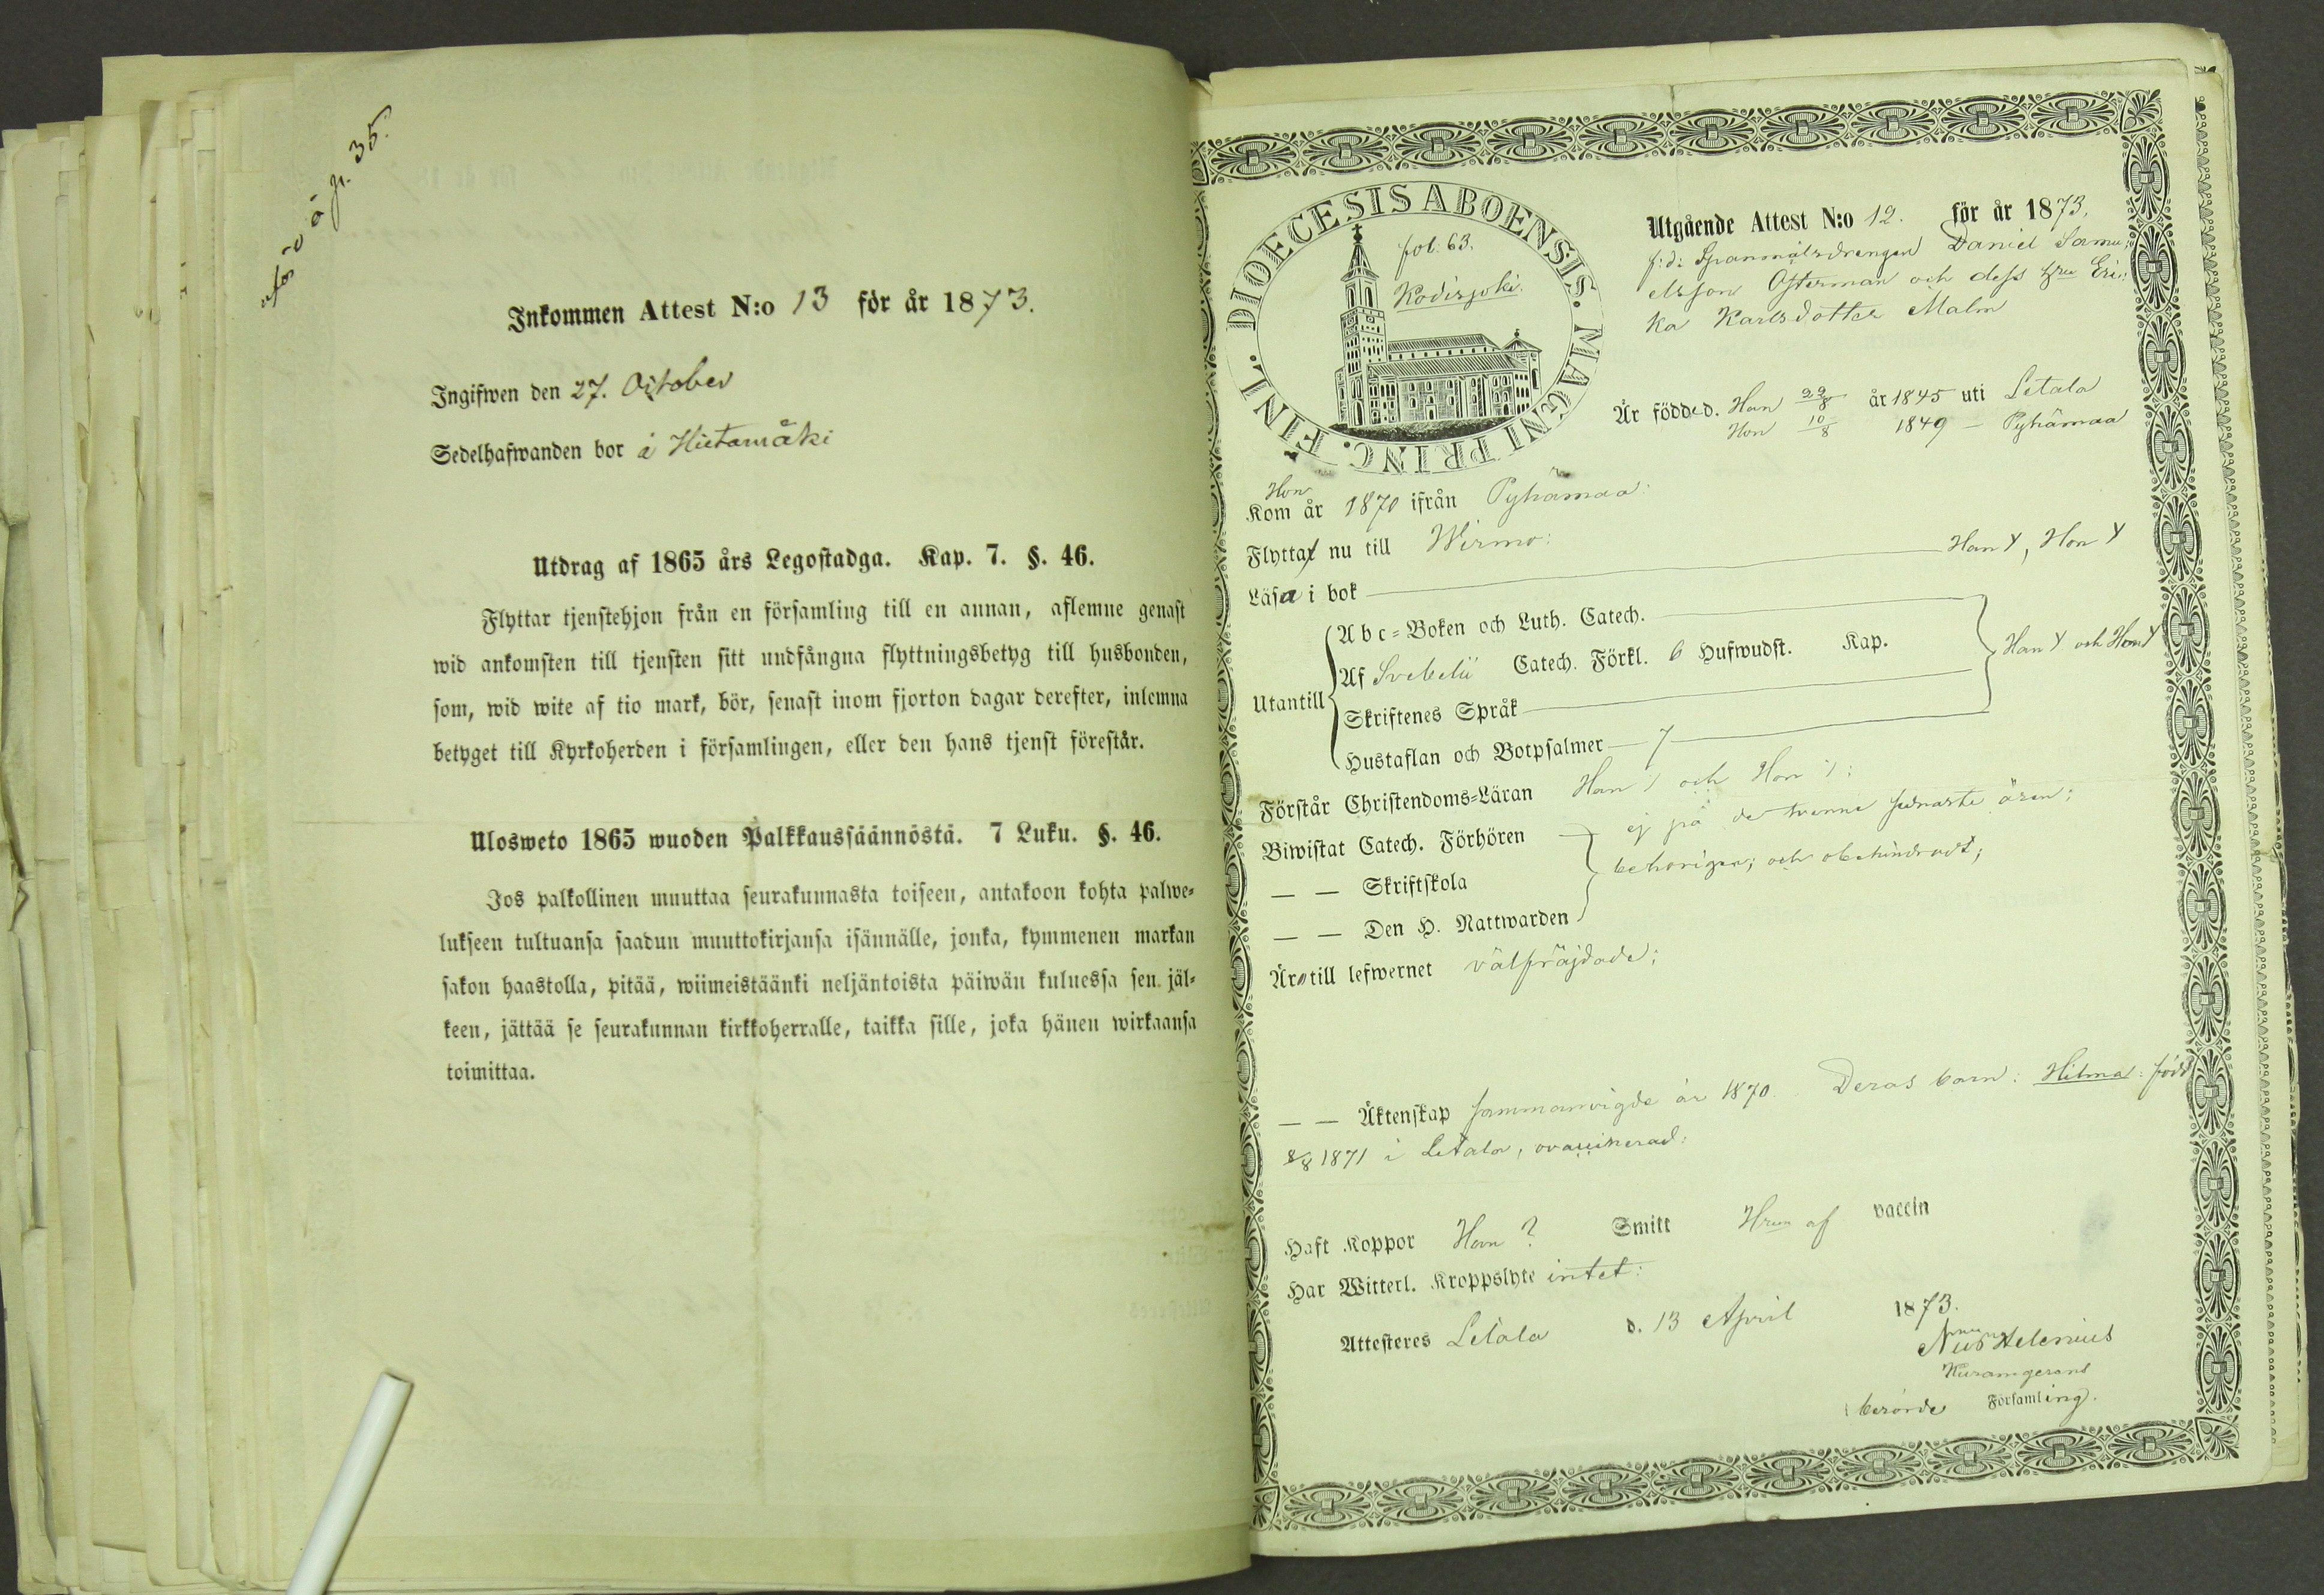 införd å p. 35.
Inkommen Attest N:o 13 för år 1873.
Ingifwen den 27. October
Sedelhafwanden bor å Hietamäki
Utdrag af 1865 års Legostadga. Kap. 7. §. 46.
Flyttar tjenstehjon från en församling till en annan, aflemne genast
wid ankomsten till tjensten sitt undfångna flyttningsbetyg till husbonden,
som, wid wite af tio mark, bör, senast inom fjorton dagar derefter, inlemna
betyget till Kyrkoherden i församlingen, eller den hans tjenst förestår.
Ulosweto 1865 wuoden Palkkaussäännöstä. 7 Luku. §. 46.
Jos palkollinen muuttaa seurakunnasta toiseen, antakoon kohta palwe-
lukseen tultuansa saadun muuttokirjansa isännälle, jonka, kymmenen markan
sakon haastolla, pitää, wiimeistäänki neljäntoista päiwän kuluessa sen jäl-
keen, jättää se seurakunnan kirkkoherralle, taikka sille, joka hänen wirkaansa
toimittaa.
FINL. DIOECESIS ABOENSIS. MAGNI PRINC.
fol. 63.
Kodisjoki.
Utgående Attest N:o 12. för år 1873.
f:d: Spanmålsdrengen Daniel Samu:
elsson Österman och dess hru Eri:
ka Karlsdotter Malm
Är födde d. Han 29/8 år 1845 uti Letala
Hon 10/8 1849 — Pyhämaa
Hon
Kom år 1870 ifrån Pyhämaa:
Flytta nu till Wirmo:
Läsa i bok Han Y, Hon Y
Utantill
Abc-Boken och Luth. Catech.
Af Svebelii Catech. Förkl. 6 Hufwudst. Kap.
Skriftenes Språk
Hustaflan och Botpsalmer 7
Han Y och Hon Y
Förstår Christendoms-Läran Han / och Hon /:
Biwistat Catech. Förhören ej på de tvenne sednaste åren;
— — Skriftskola behörigen; och obehindradt;
— — Den H. Nattwarden
Äro till lefwernet välfräjdade;
— — Äktenskap sammanvigde år 1870. Deras barn: Hilma: född
8/8 1871 i Letala, ovaccinerad:
Haft Koppor Han? Smitt Hrun af vaccin
Har Witterl. Kroppslyte intet:
Attesteres Letala d. 13 April 1873.
Helenius
berörde Församling.